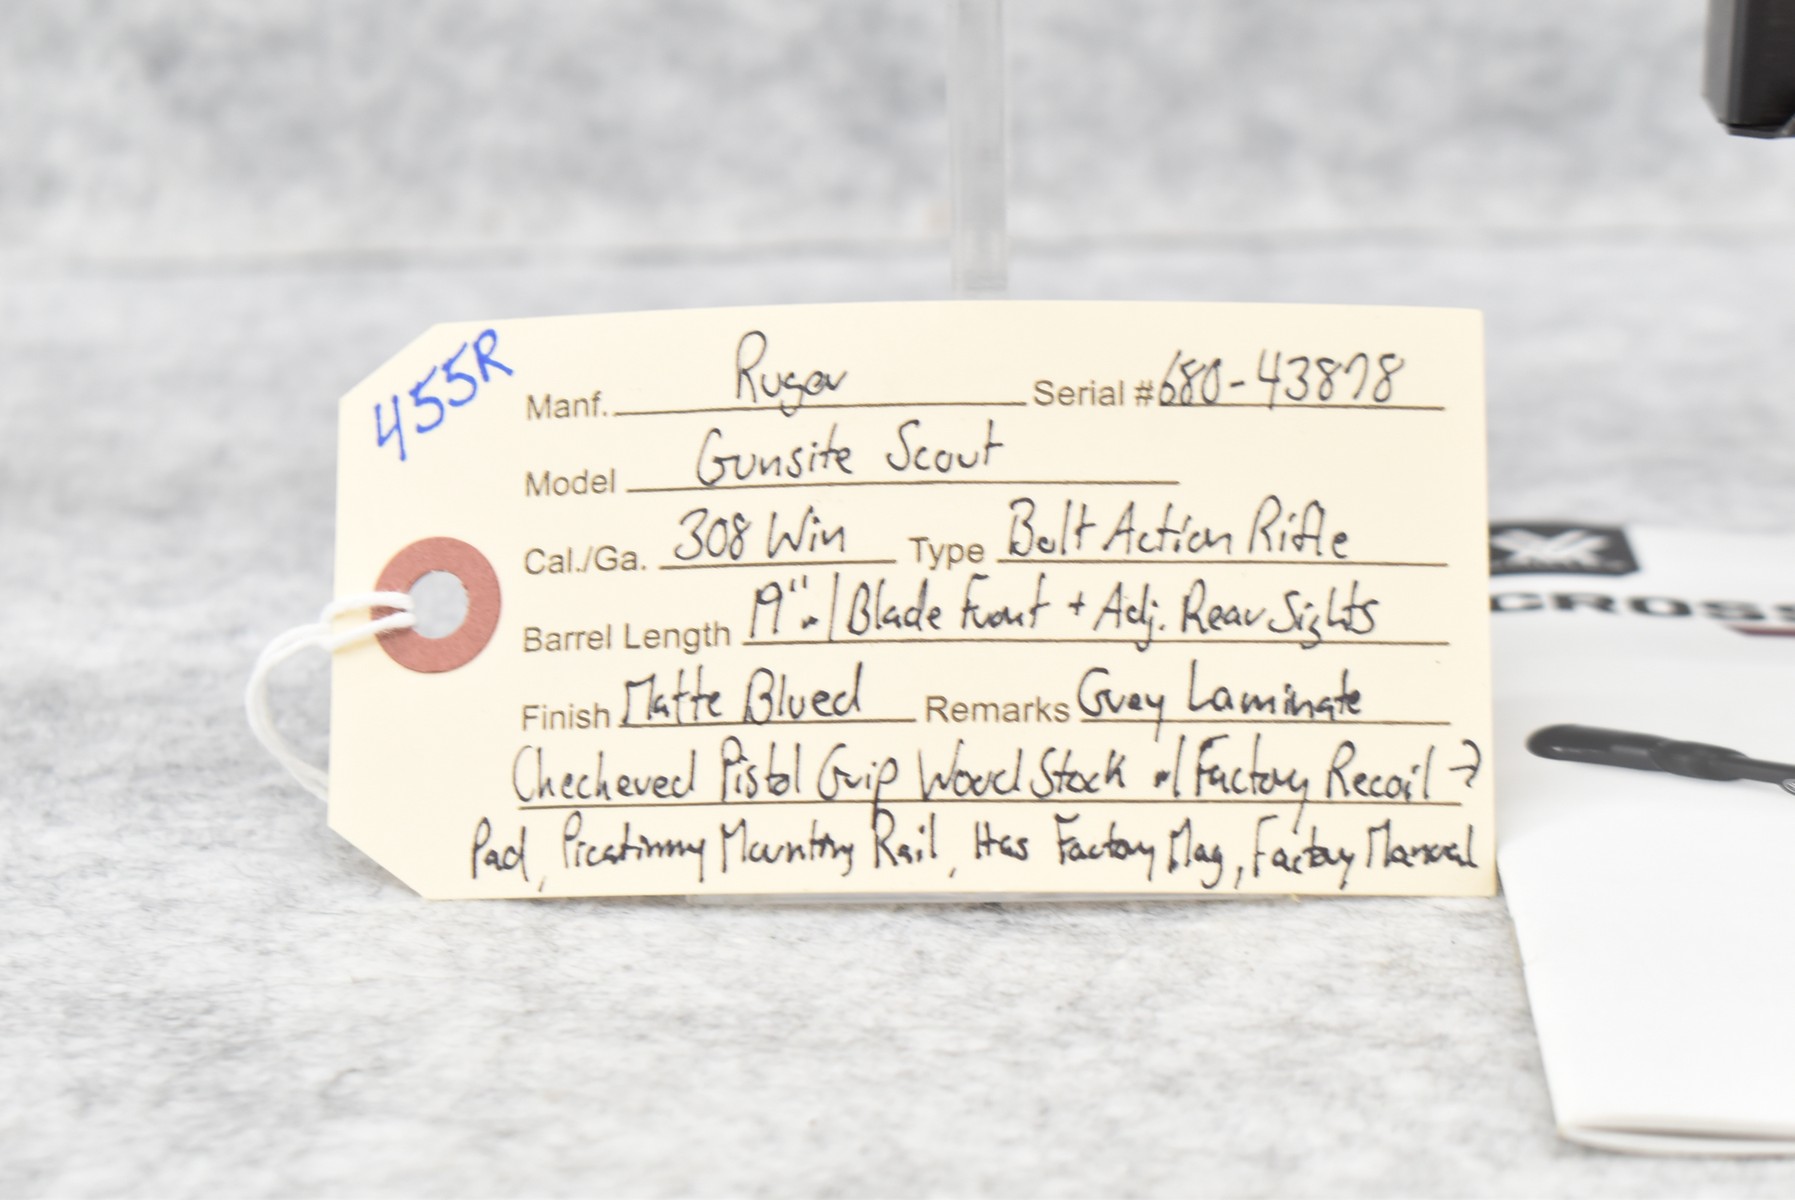 455R
Manf. Ruger Serial # 680-43878
Model Gunsite Scout
Cal./Ga. 308 Win Type Bolt Action Rifle
Barrel Length 19" w/ Blade Front + Adj. Rear Sights
Finish Matte Blued Remarks Grey Laminate
Checkered Pistol Grip Wood Stock w/ Factory Recoil →
Pad, Picatinny Mounting Rail, Has Factory Mag, Factory Manual
CROSS